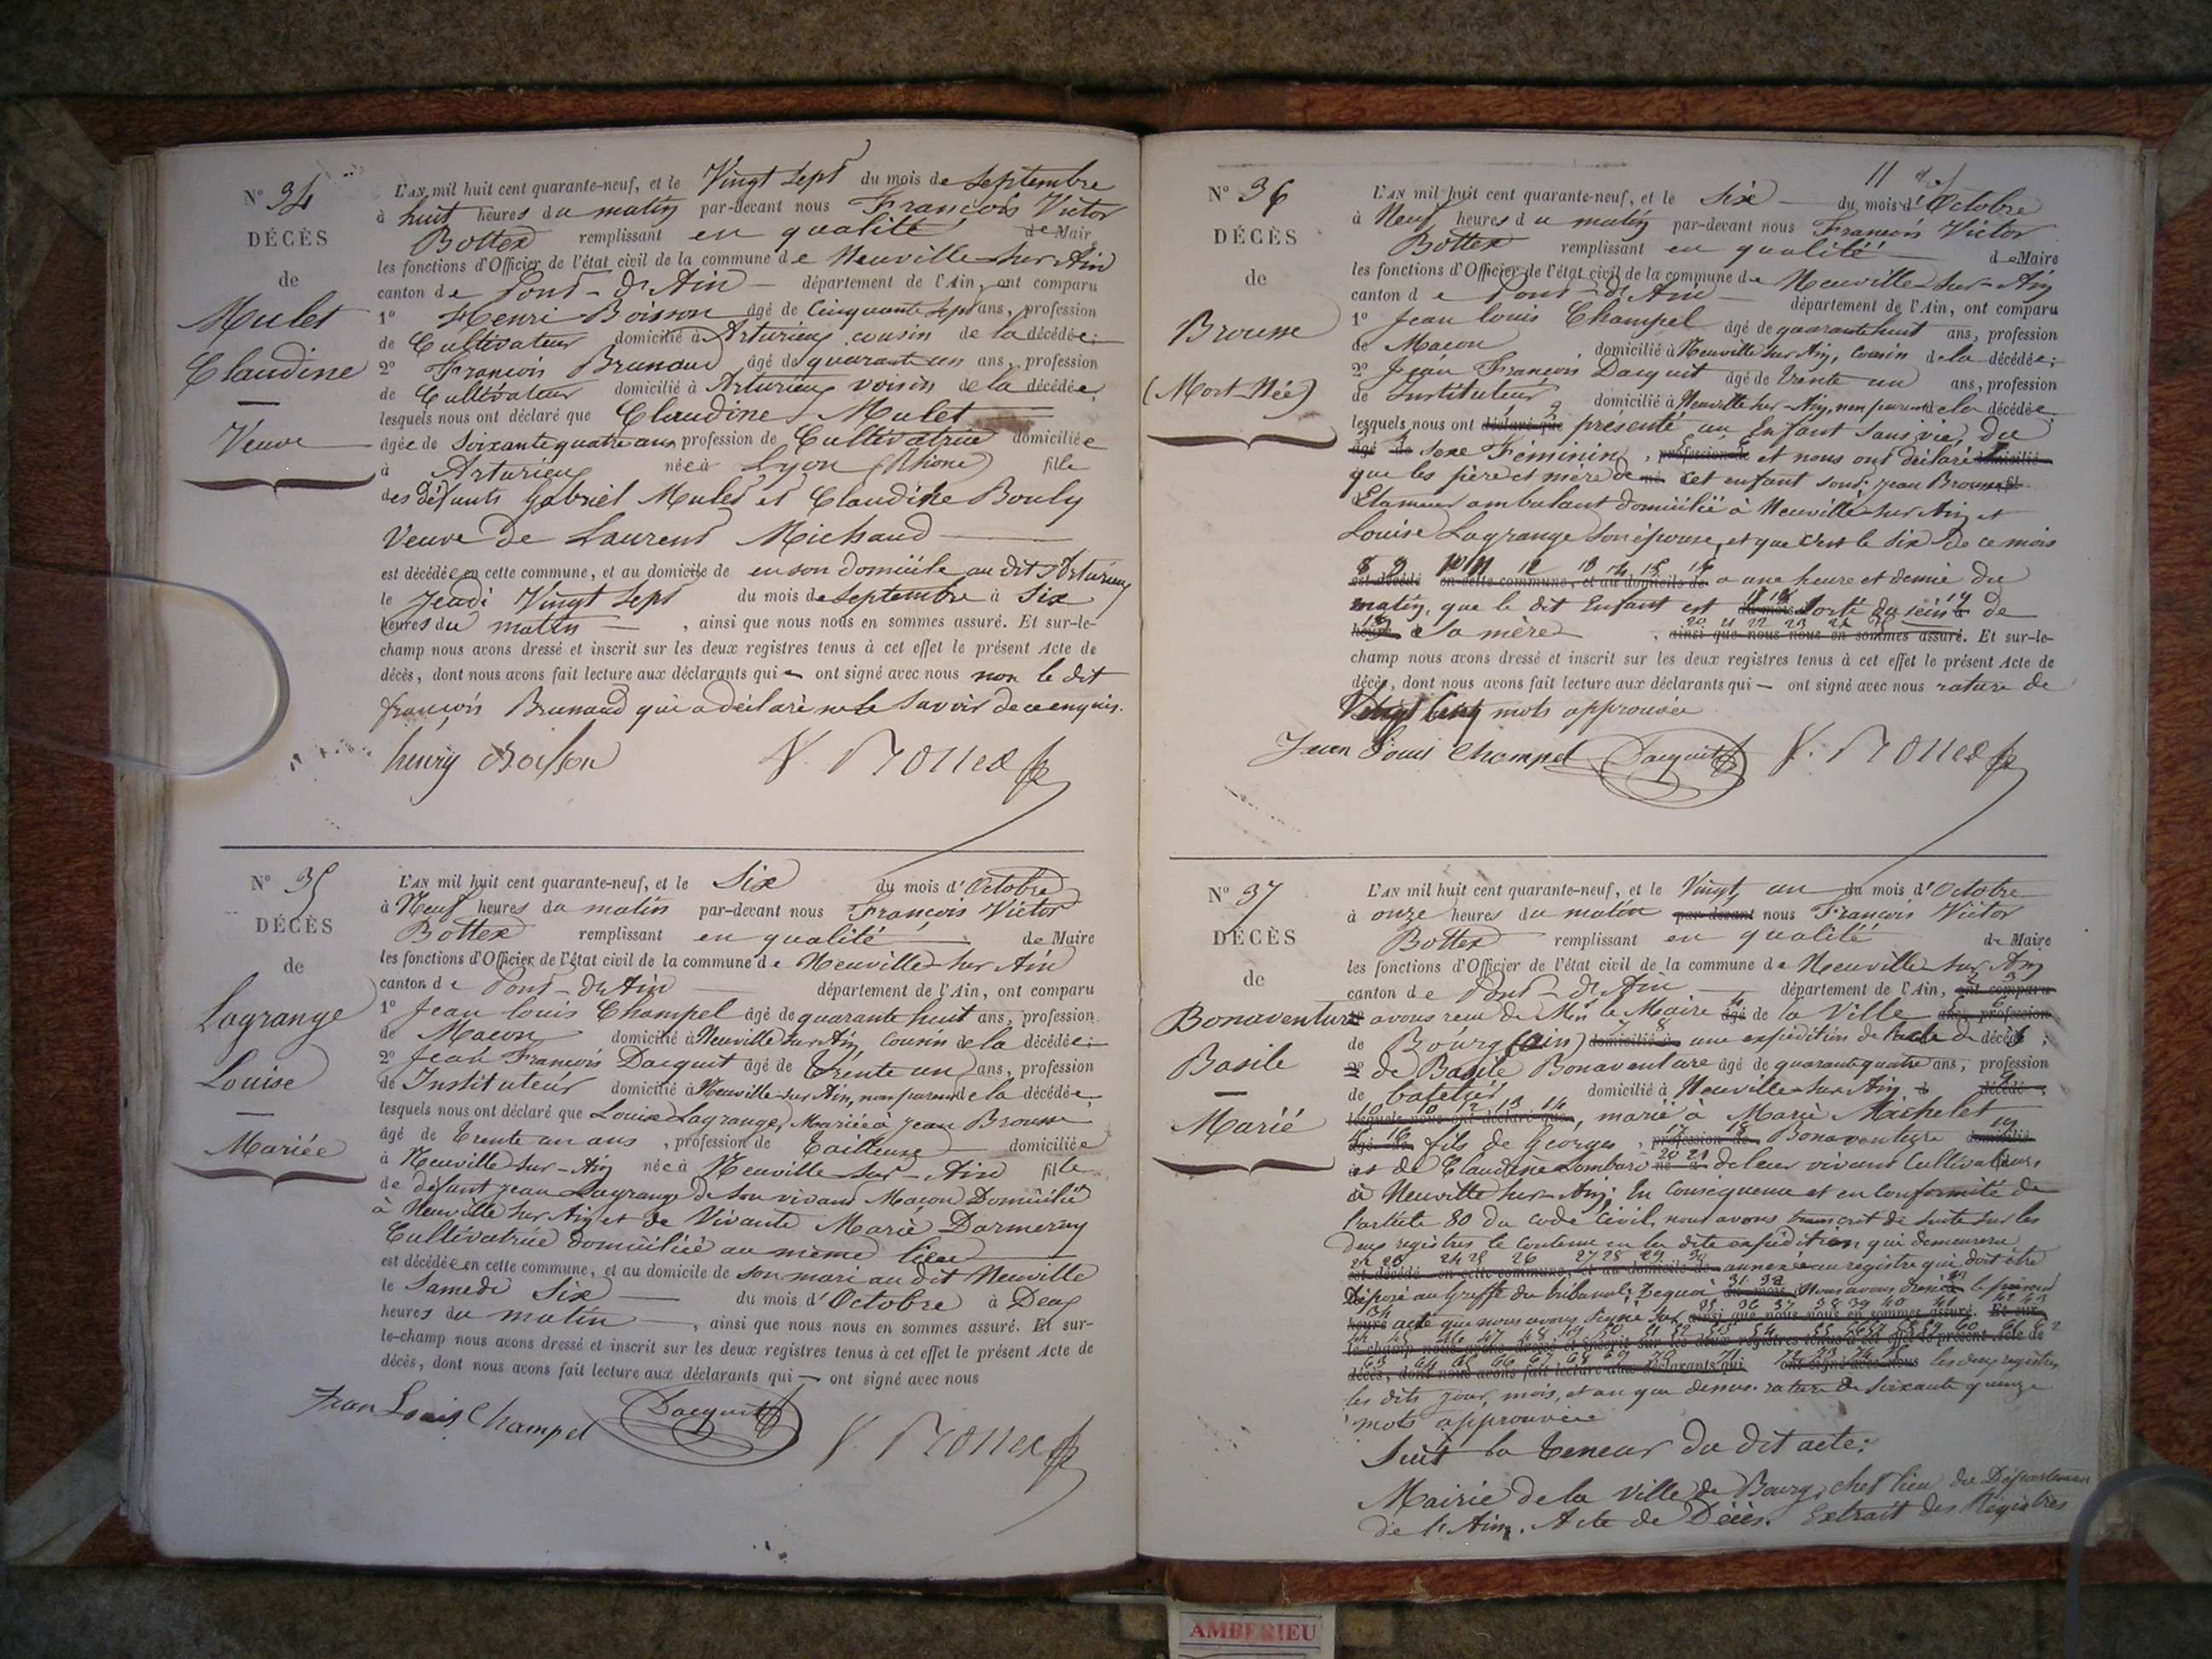 N° 34
DÉCÈS
de
Mulet
Claudine
—
Veuve
L'AN mil huit cent quarante-neuf, et le Vingt Sept du mois de Septembre
à huit heures du matin par-devant nous François Victor
Bottex remplissant en qualité de Mair
les fonctions d'Officier de l'état civil de la commune de Neuville sur Ain
canton de Pont-d'Ain — département de l'Ain, ont comparu
1° Henri Boisson âgé de Cinquante Sept ans, profession
de Cultivateur domicilié à Arturieux cousin de la décédée;
2° François Brunaud âgé de quarante un ans, profession
de Cultivateur domicilié à Arturieux voisin de la décédée,
lesquels nous ont déclaré que Claudine Mulet
âgée de Soixante quatre ans profession de Cultivatrice domiciliée
à Arturieux née à Lyon (Rhône) fille
des défunts Gabriel Mulet et Claudine Bouly
Veuve de Laurent Michaud
est décédée en cette commune, et au domicile de en son domicile au dit Arturieux
le Jeudi Vingt Sept du mois de Septembre à Six
heures du matin — , ainsi que nous nous en sommes assuré. Et sur-le-
champ nous avons dressé et inscrit sur les deux registres tenus à cet effet le présent Acte de
décès, dont nous avons fait lecture aux déclarants qui — ont signé avec nous non le dit
françois Brunaud qui a déclaré ne le Savoir de ce enquis.
henry Boisson V. Bottex
N° 35
DÉCÈS
de
Lagrange
Louise
—
Mariée
L'AN mil huit cent quarante-neuf, et le Six du mois d'Octobre
à Neuf heures du matin par-devant nous François Victor
Bottex remplissant en qualité — de Maire
les fonctions d'Officier de l'état civil de la commune de Neuville sur Ain
canton de Pont-d'Ain — département de l'Ain, ont comparu
1° Jean Louis Champel âgé de quarante huit ans, profession
de Maçon domicilié à Neuville sur Ain Cousin de la décédée;
2° Jean François Dacquit âgé de Trente un ans, profession
de Instituteur domicilié à Neuville sur Ain, non parent de la décédée,
lesquels nous ont déclaré que Louise Lagrange, Mariée à Jean Brousse
âgé de Trente un ans , profession de Tailleuse domiciliée
à Neuville sur-Ain née à Neuville sur-Ain fille
de défunt Jean Lagrange de Son vivant Maçon Domicilié
à Neuville Sur Ain et de Vivante Marie Darmeray
Cultivatrice domiciliée au même lieu
est décédée en cette commune, et au domicile de son mari au dit Neuville
le Samedi Six — du mois d'Octobre à Deux
heures du matin — , ainsi que nous nous en sommes assuré. Et sur-
le-champ nous avons dressé et inscrit sur les deux registres tenus à cet effet le présent Acte de
décès, dont nous avons fait lecture aux déclarants qui — ont signé avec nous
Jean Louis Champel Dacquit V. Bottex
11
N° 36
DÉCÈS
de
Brousse
(Mort-Née)
L'AN mil huit cent quarante-neuf, et le Six — du mois d'Octobre
à Neuf heures du matin par-devant nous François Victor
Bottex remplissant en qualité — de Maire
les fonctions d'Officier de l'état civil de la commune de Neuville sur-Ain
canton de Pont-d'Ain — département de l'Ain, ont comparu
1° Jean Louis Champel âgé de quarante huit ans, profession
de Maçon domicilié à Neuville sur Ain, Cousin de la décédée;
2° Jean François Dacquit âgé de Trente un ans, profession
de Instituteur domicilié à Neuville sur-Ain, non parent de la décédée,
lesquels nous ont déclaré que présenté un Enfant sans vie, du
âgé de sexe Féminin, profession de et nous ont déclaré domicilié
que les père et mère de né Cet enfant sont: Jean Brousse
Etameur ambulant domicilié à Neuville sur Ain et
Louise Lagrange son épouse, et que c'est le Six de ce mois
8 9 10 11 12 13 14 15 16
est décédé en cette commune, et au domicile de a une heure et demie du
matin, que le dit Enfant est du mois Sorti du sein à de
heure Sa mère , ainsi que nous nous en sommes assuré. Et sur-le-
champ nous avons dressé et inscrit sur les deux registres tenus à cet effet le présent Acte de
décès, dont nous avons fait lecture aux déclarants qui — ont signé avec nous rature de
Vingt Cinq mots approuvée
Jean Louis Champel Dacquit V. Bottex
N° 37
DÉCÈS
de
Bonaventure
Basile
—
Marié
L'AN mil huit cent quarante-neuf, et le Vingt, un du mois d'Octobre
à onze heures du matin par-devant nous François Victor
Bottex remplissant en qualité de Maire
les fonctions d'Officier de l'état civil de la commune de Neuville sur Ain
canton de Pont-d'Ain — département de l'Ain, ont comparu
1° avons reçu de Mr le Maire âgé de la Ville ans, profession
de Bourg (Ain) domicilié à une expédition de l'acte de décès;
2° de Basile Bonaventure âgé de quarante quatre ans, profession
de batelier domicilié à Neuville sur Ain décédé,
lesquels nous ont déclaré que, marié à Marie Michelet
âgé de fils de Georges , profession de Bonaventure domicilié
et de Claudine Lombard né à de leur vivant Cultivateurs
à Neuville sur-Ain; En Conséquence et en Conformité de
l'article 80 du Code Civil, nous avons transcrit de suite sur les
deux registres le contenu en la dite expédition qui demeurera
est décédé en cette commune, et au domicile de annexée au registre qui doit être
Déposé au Greffe du tribunal; De quoi du mois Nous avons dressé à le présent
heure acte que nous avons signé sur ainsi que nous nous en sommes assuré. Et sur-
le-champ nous avons dressé et inscrit sur les deux registres tenus à cet effet le présent Acte de
décès, dont nous avons fait lecture aux déclarants qui ont signé avec nous les deux registres
les dits jour, mois, et an que dessus. rature de Soixante quinze
mots approuvée
Suit la teneur du dit acte:
Mairie de la Ville de Bourg, chef lieu du Département
de l'Ain. Acte de Décès. Extrait des Registres
AMBERIEU